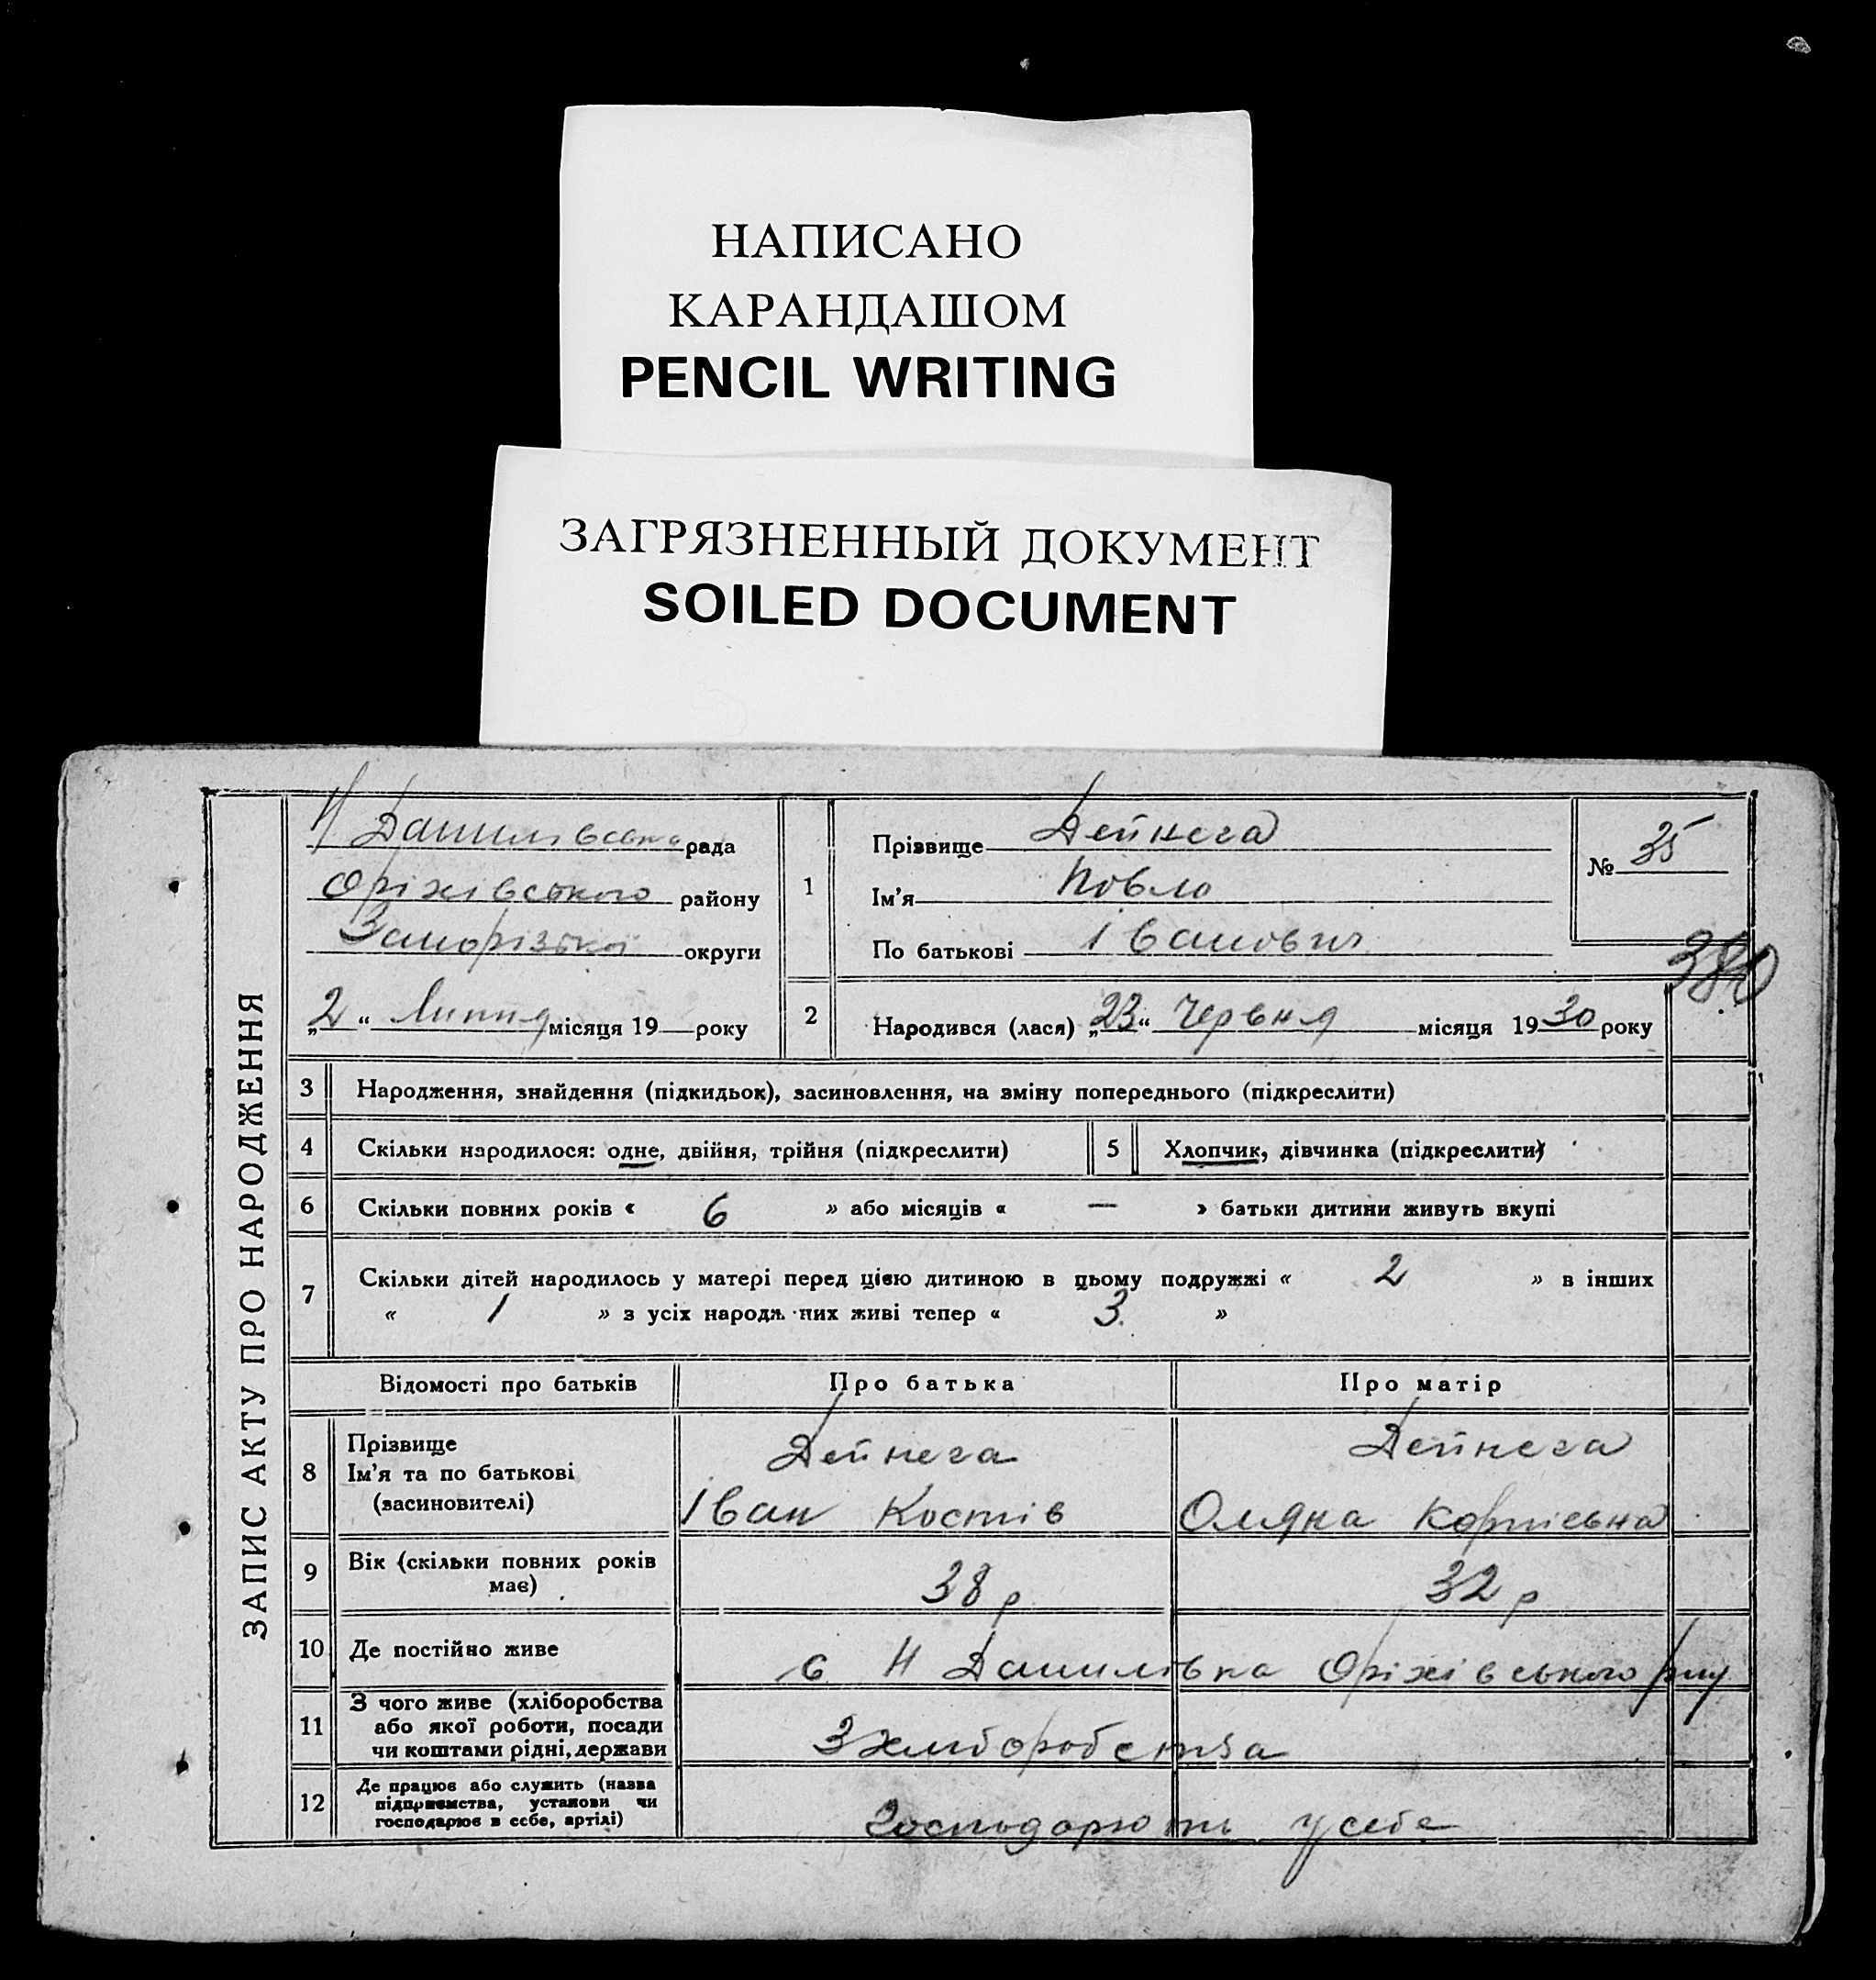 НАПИСАНО
КАРАНДАШОМ
PENCIL WRITING
ЗАГРЯЗНЕННЫЙ ДОКУМЕНТ
SOILED DOCUMENT
ЗАПИС АКТУ ПРО НАРОДЖЕННЯ
Н Данилівська рада
Оріхівського району
Запорізької округи
„2“ Липня місяця 19 року
1 Прізвище Дейнега
Ім'я Павло
По батькові Іванович
№ 35
380
2 Народився (лася) „23“ Червня місяця 1930 року
3 Народження, знайдення (підкидьок), засиновлення, на зміну попереднього (підкреслити)
4 Скільки народилося: одне, двійня, трійня (підкреслити) 5 Хлопчик, дівчинка (підкреслити)
6 Скільки повних років « 6 » або місяців « — » батьки дитини живуть вкупі
7 Скільки дітей народилось у матері перед цією дитиною в цьому подружжі « 2 » в інших
« 1 » з усіх народж них живі тепер « 3 »
Відомості про батьків Про батька Про матір
8 Прізвище Дейнега Дейнега
Ім'я та по батькові
(засиновителі) Іван Костів Оляна Корніевна
9 Вік (скільки повних років
має) 38 р 32 р
10 Де постійно живе с Н Данилівка Оріхівського р-ну
11 З чого живе (хліборобства
або якої роботи, посади
чи коштами рідні, держави З хліборобства
12 Де працює або служить (назва
підприємства, установи чи
господарює в себе, артілі) Господарюють у себе